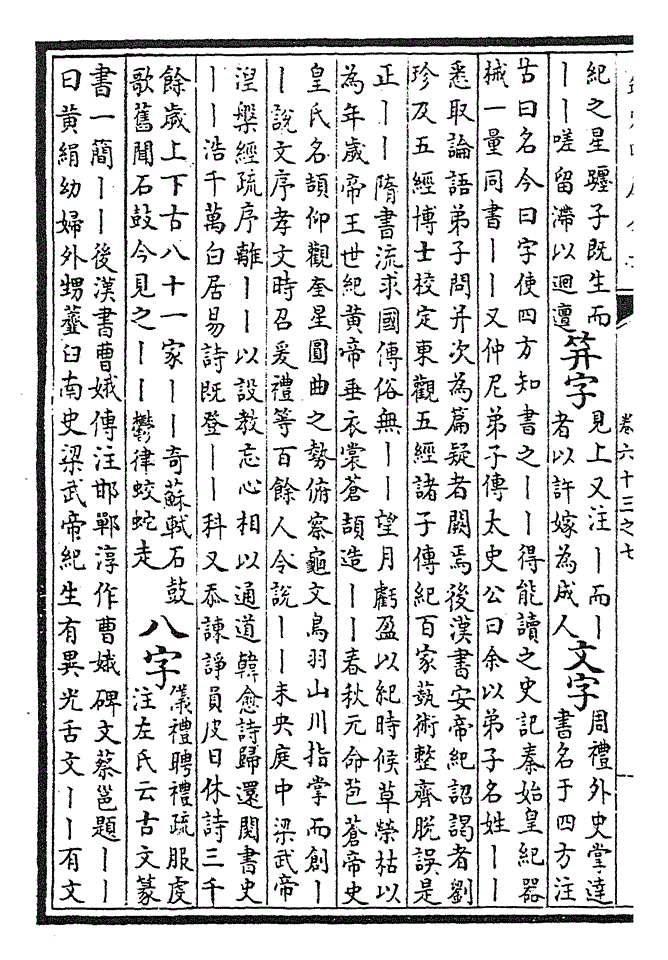 卷六十三之七
紀之星躔子既生而
丨丨嗟留滯以迴邅
筓字
見上又注丨而丨
者以許嫁為成人
文字
周禮外史掌達
書名于四方注
古曰名今曰字使四方知書之丨丨得能讀之史記秦始皇紀器
械一量同書丨丨又仲尼弟子傳太史公曰余以弟子名姓丨丨
悉取論語弟子問并次為篇疑者闕焉後漢書安帝紀詔謁者劉
珍及五經博士校定東觀五經諸子傳紀百家藝術整齊脱誤是
正丨丨隋書流求國傳俗無丨丨望月虧盈以紀時候草榮枯以
為年歲帝王世紀黄帝垂衣裳蒼頡造丨丨春秋元命苞蒼帝史
皇氏名頡仰觀奎星圓曲之勢俯察龜文鳥羽山川指掌而創丨
丨說文序孝文時召爰禮等百餘人令說丨丨未央庭中梁武帝
湼槃經疏序離丨丨以設教忘心相以通道韓愈詩歸還閱書史
丨丨浩千萬白居易詩既登丨丨科又忝諫諍員皮日休詩三千
餘歲上下古八十一家丨丨奇蘇軾石鼓
歌舊聞石鼓今見之丨丨鬱律蛟蛇走
八字
儀禮聘禮疏服虔
注左氏云古文篆
書一簡丨丨後漢書曹娥傳注邯鄲淳作曹娥碑文蔡邕題丨丨
曰黄絹幼婦外甥虀臼南史梁武帝紀生有異光舌文丨丨有文